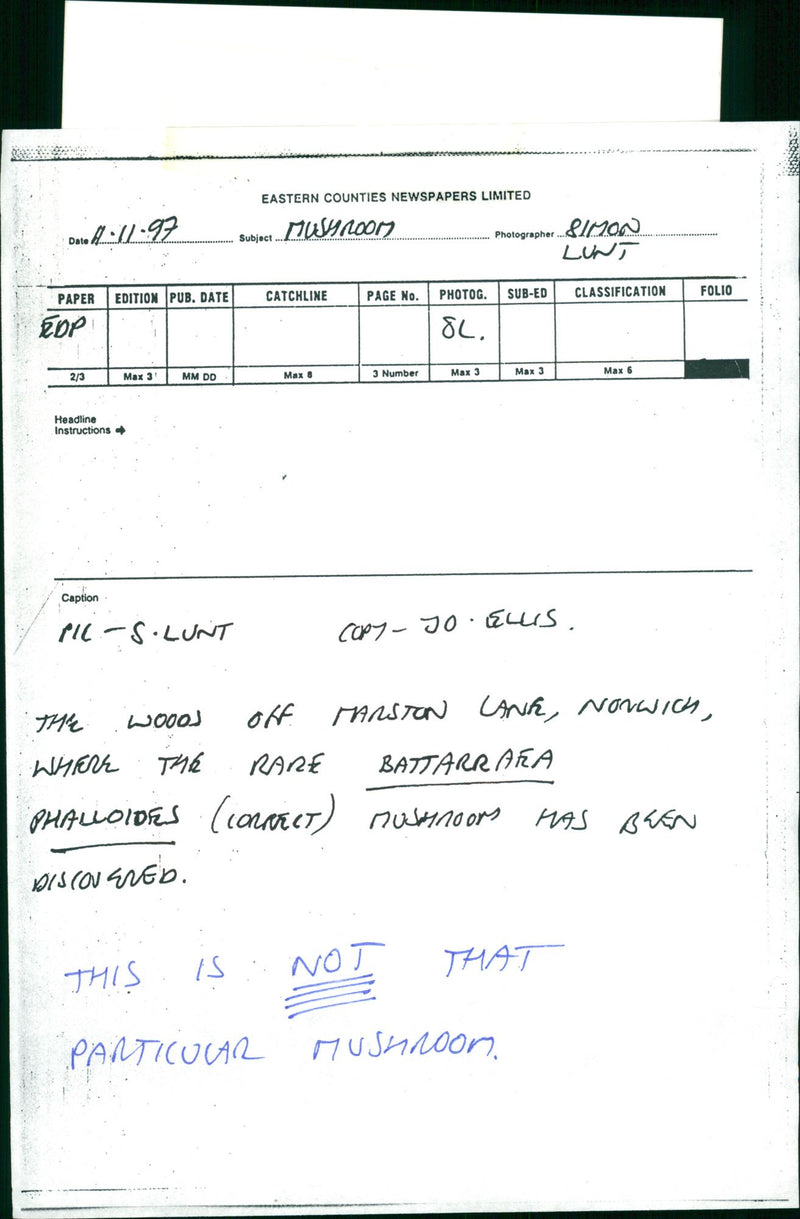 EASTERN COUNTIES NEWSPAPERS LIMITED
Date 11.11.97 Subject MUSHROOM Photographer SIMON
LUNT
PAPER EDITION PUB. DATE CATCHLINE PAGE No. PHOTOG. SUB-ED CLASSIFICATION FOLIO
EDP SL.
2/3 Max 3 MM DD Max 8 3 Number Max 3 Max 3 Max 6
Headline
Instructions →
Caption
PIC - S. LUNT COPY - JO. ELLIS.
THE WOODS OFF MARSTON LANE, NORWICH,
WHERE THE RARE BATTARRAEA
PHALLOIDES (CORRECT) MUSHROOM HAS BEEN
DISCOVERED.
THIS IS NOT THAT
PARTICULAR MUSHROOM.